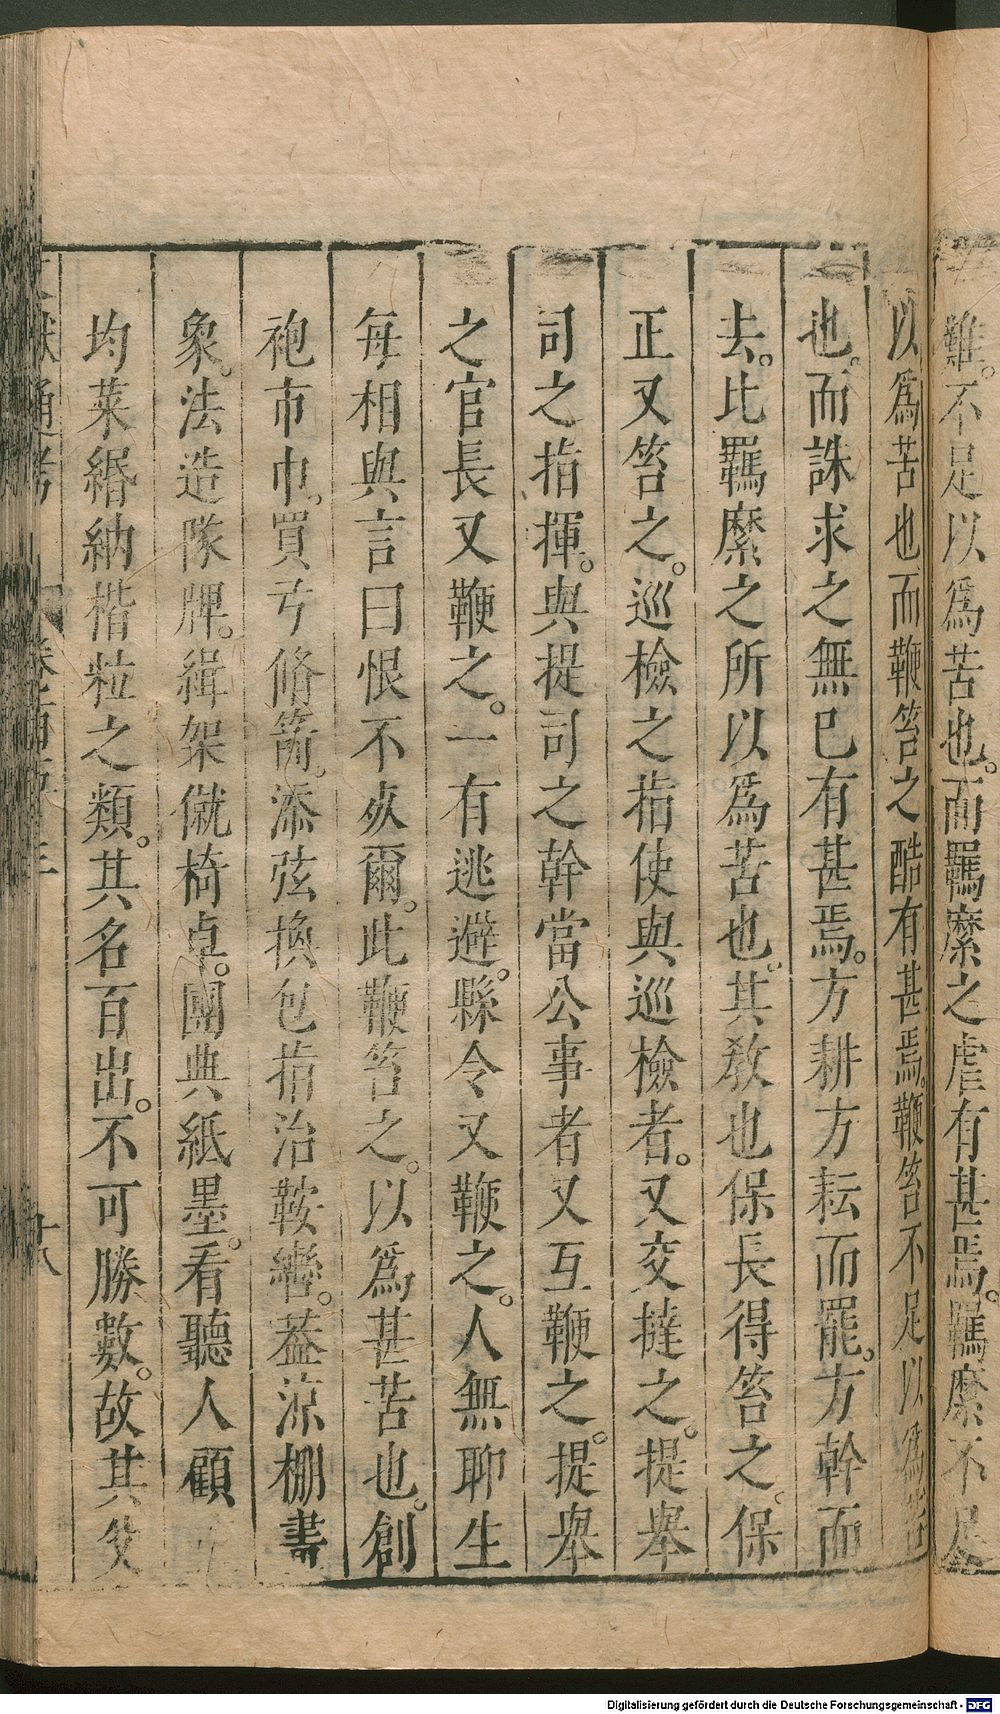 難。不足以爲苦也。而羈縻之虐有甚焉。羈縻不足
以爲苦也而鞭笞之酷有甚焉。鞭笞不足以爲苦
也。而誅求之無已有甚焉。方耕方耘而罷。方幹而
去。比羈縻之所以爲苦也。其教也保長得笞之。保
正又笞之。巡檢之指使與巡檢者。又交撻之。提舉
司之指揮。與提司之幹當公事者又互鞭之。提舉
之官長又鞭之。一有逃避。縣令又鞭之。人無聊生
每相與言曰恨不死爾。此鞭笞之。以爲甚苦也。創
袍市巾。買弓脩箭。添弦換包指治鞍轡。葢涼棚畫
象。法造隊牌。緝架僦椅卓。團典紙墨。看聽人顧
均菜緡納楷粒之類。其名百出。不可勝數。故其父
獻通考
十八
Digitalisierung gefördert durch die Deutsche Forschungsgemeinschaft - DFG